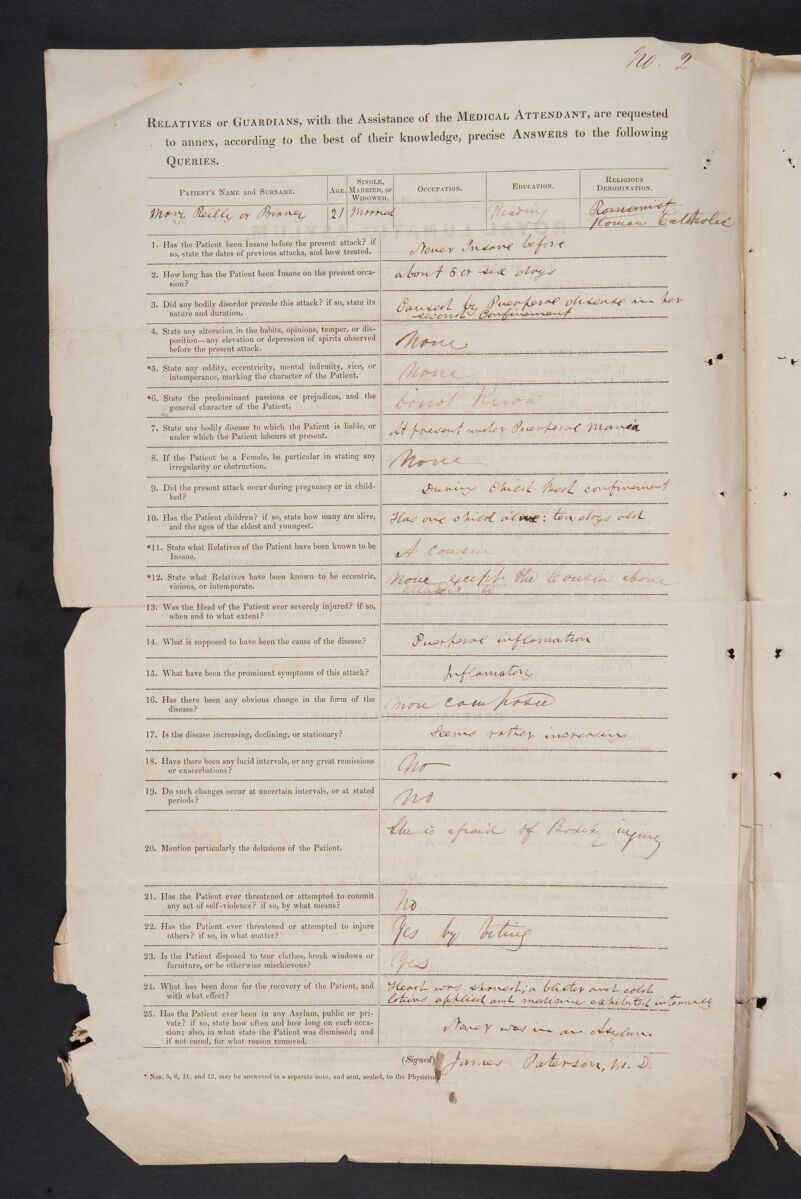 No. 2
RELATIVES or GUARDIANS, with the Assistance of the MEDICAL ATTENDANT, are requested
to annex, according to the best of their knowledge, precise ANSWERS to the following
QUERIES.
PATIENT'S NAME and SURNAME.
AGE.
SINGLE,
MARRIED, or
WIDOWED.
OCCUPATION.
EDUCATION.
RELIGIOUS
DENOMINATION.
Mary Reilly or Binney
21
Married
Reading
Romanist
Roman Catholic
1. Has the Patient been Insane before the present attack? if
so, state the dates of previous attacks, and how treated.
Never Insane before
2. How long has the Patient been Insane on the present occa-
sion?
about 5 or six days
3. Did any bodily disorder precede this attack? if so, state its
nature and duration.
Caused by Puerperal disease in her
second Confinement
4. State any alteration in the habits, opinions, temper, or dis-
position—any elevation or depression of spirits observed
before the present attack.
None
*5. State any oddity, eccentricity, mental infirmity, vice, or
intemperance, marking the character of the Patient.
None
*6. State the predominant passions or prejudices, and the
general character of the Patient.
Do not Know
7. State any bodily disease to which the Patient is liable, or
under which the Patient labours at present.
At present under Puerperal Mania
8. If the Patient be a Female, be particular in stating any
irregularity or obstruction.
None
9. Did the present attack occur during pregnancy or in child-
bed?
During Child Bed confinement
10. Has the Patient children? if so, state how many are alive,
and the ages of the eldest and youngest.
Has one child alive: ten days old
*11. State what Relatives of the Patient have been known to be
Insane.
A Cousin
*12. State what Relatives have been known to be eccentric,
vicious, or intemperate.
None except the Cousin above
13. Was the Head of the Patient ever severely injured? if so,
when and to what extent?
14. What is supposed to have been the cause of the disease?
Puerperal inflamation
15. What have been the prominent symptoms of this attack?
Inflamatory
16. Has there been any obvious change in the form of the
disease?
More composed
17. Is the disease increasing, declining, or stationary?
Seems rather increasing
18. Have there been any lucid intervals, or any great remissions
or exacerbations?
No
19. Do such changes occur at uncertain intervals, or at stated
periods?
No
20. Mention particularly the delusions of the Patient.
She is afraid of Bodily injury
21. Has the Patient ever threatened or attempted to commit
any act of self-violence? if so, by what means?
No
22. Has the Patient ever threatened or attempted to injure
others? if so, in what matter?
Yes by biting
23. Is the Patient disposed to tear clothes, break windows or
furniture, or be otherwise mischievous?
Yes
24. What has been done for the recovery of the Patient, and
with what effect?
Head was shaved; a blister and cold
lotions applied and medicines exhibited internally
25. Has the Patient ever been in any Asylum, public or pri-
vate? if so, state how often and how long on each occa-
sion; also, in what state the Patient was dismissed; and
if not cured, for what reason removed.
Never was in an Asylum
(Signed) James Paterson, M.D.
* Nos. 5, 6, 11, and 12, may be answered in a separate note, and sent, sealed, to the Physician